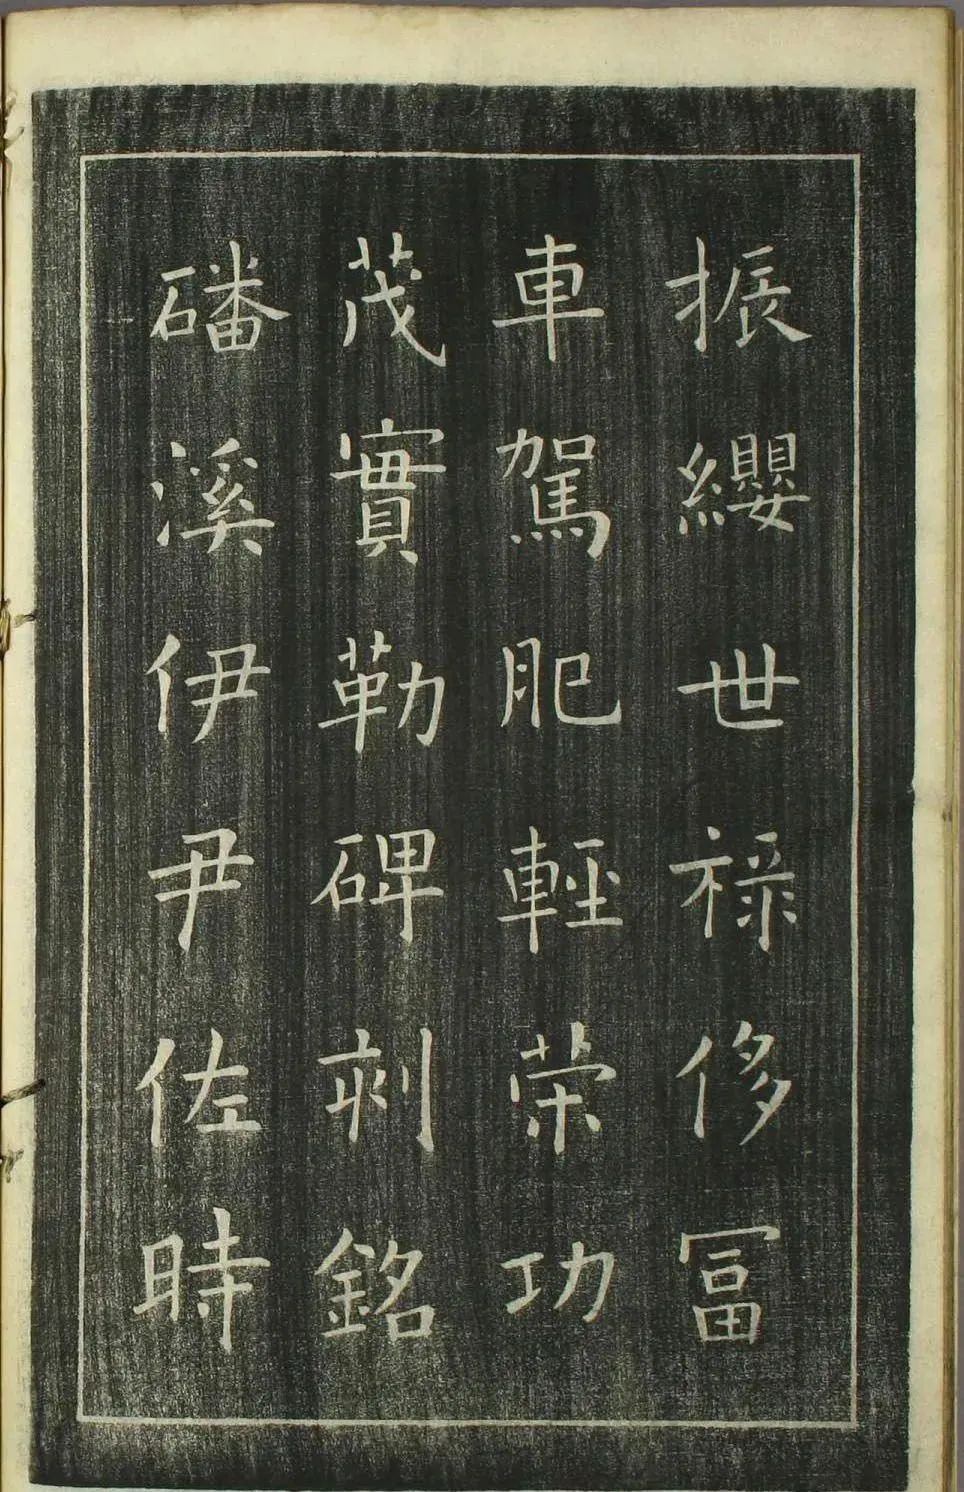 振纓世祿侈冨
車駕肥輕荣功
茂實勒碑刻銘
磻溪伊尹佐時